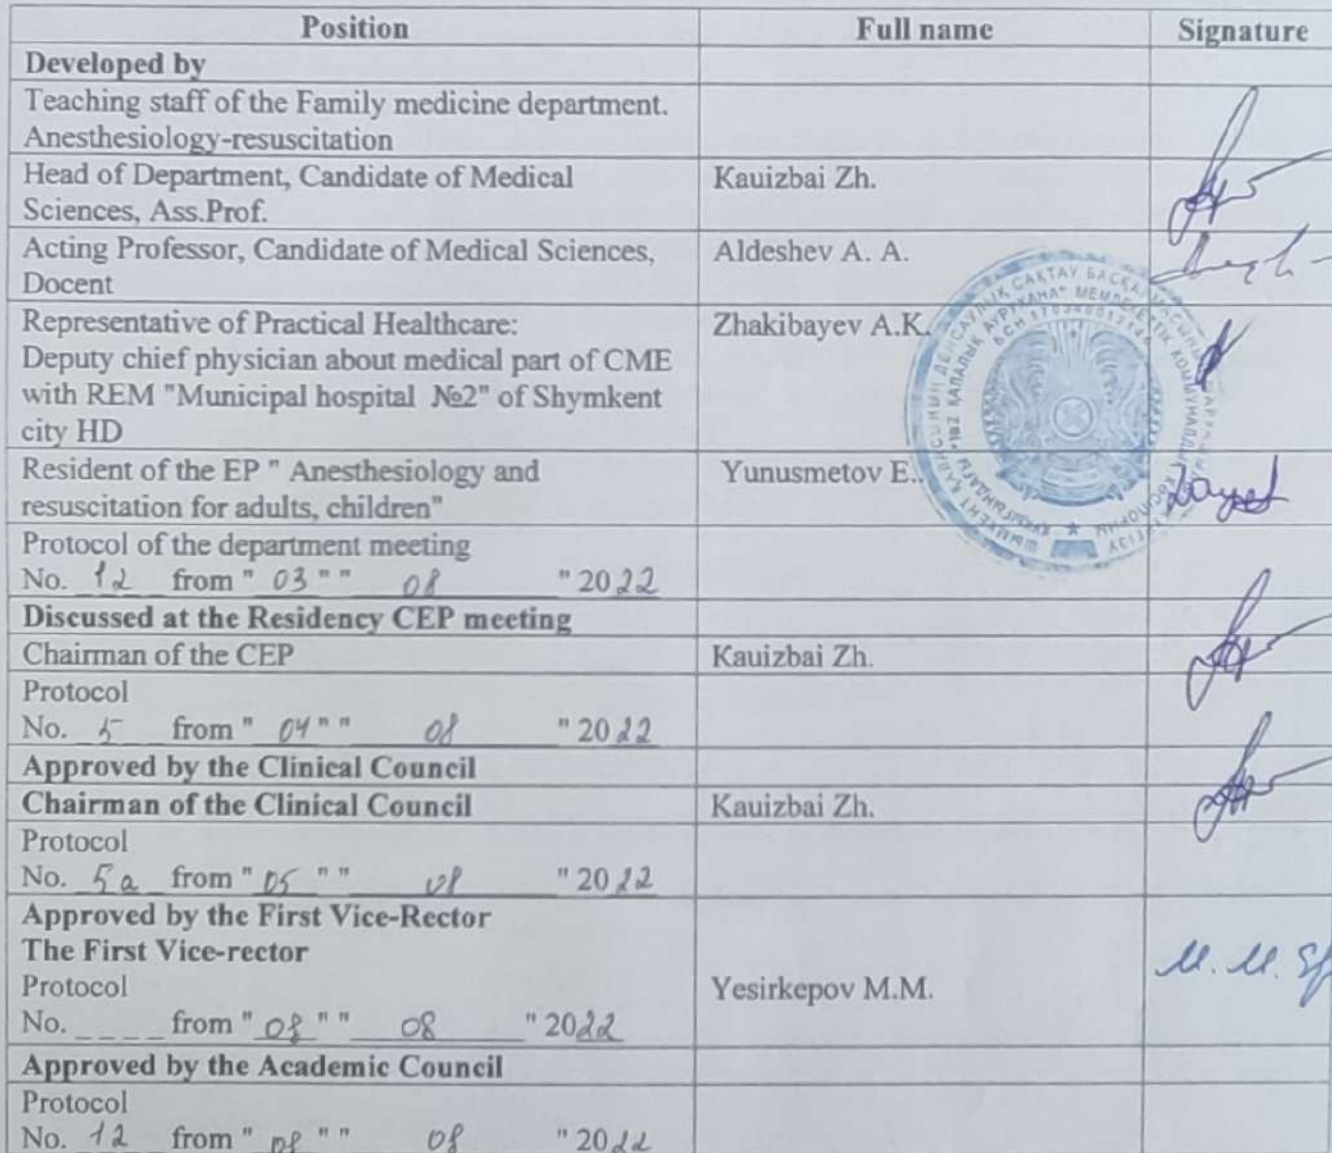 Position Full name Signature
Developed by
Teaching staff of the Family medicine department.
Anesthesiology-resuscitation
Head of Department, Candidate of Medical Kauizbai Zh.
Sciences, Ass.Prof.
Acting Professor, Candidate of Medical Sciences, Aldeshev A. A.
Docent
Representative of Practical Healthcare: Zhakibayev A.K.
Deputy chief physician about medical part of CME
with REM "Municipal hospital №2" of Shymkent
city HD
Resident of the EP " Anesthesiology and Yunusmetov E..
resuscitation for adults, children"
Protocol of the department meeting
No. 12 from " 03 " " 08 " 2022
Discussed at the Residency CEP meeting
Chairman of the CEP Kauizbai Zh.
Protocol
No. 5 from " 04 " " 08 " 2022
Approved by the Clinical Council
Chairman of the Clinical Council Kauizbai Zh.
Protocol
No. 5a from " 05 " " 08 " 2022
Approved by the First Vice-Rector
The First Vice-rector
Protocol Yesirkepov M.M.
No. ____ from " 08 " " 08 " 2022
Approved by the Academic Council
Protocol
No. 12 from " 08 " " 08 " 2022